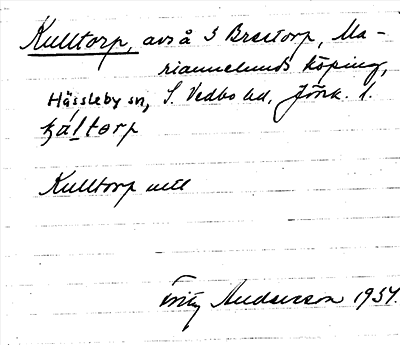 Kulltorp, avs å 3 Brostorp, Ma-
riannelunds köping,
Hässleby sn, S. Vedbo hd, Jönk. l.
Kulltorp
Fritz Andersson 1957.